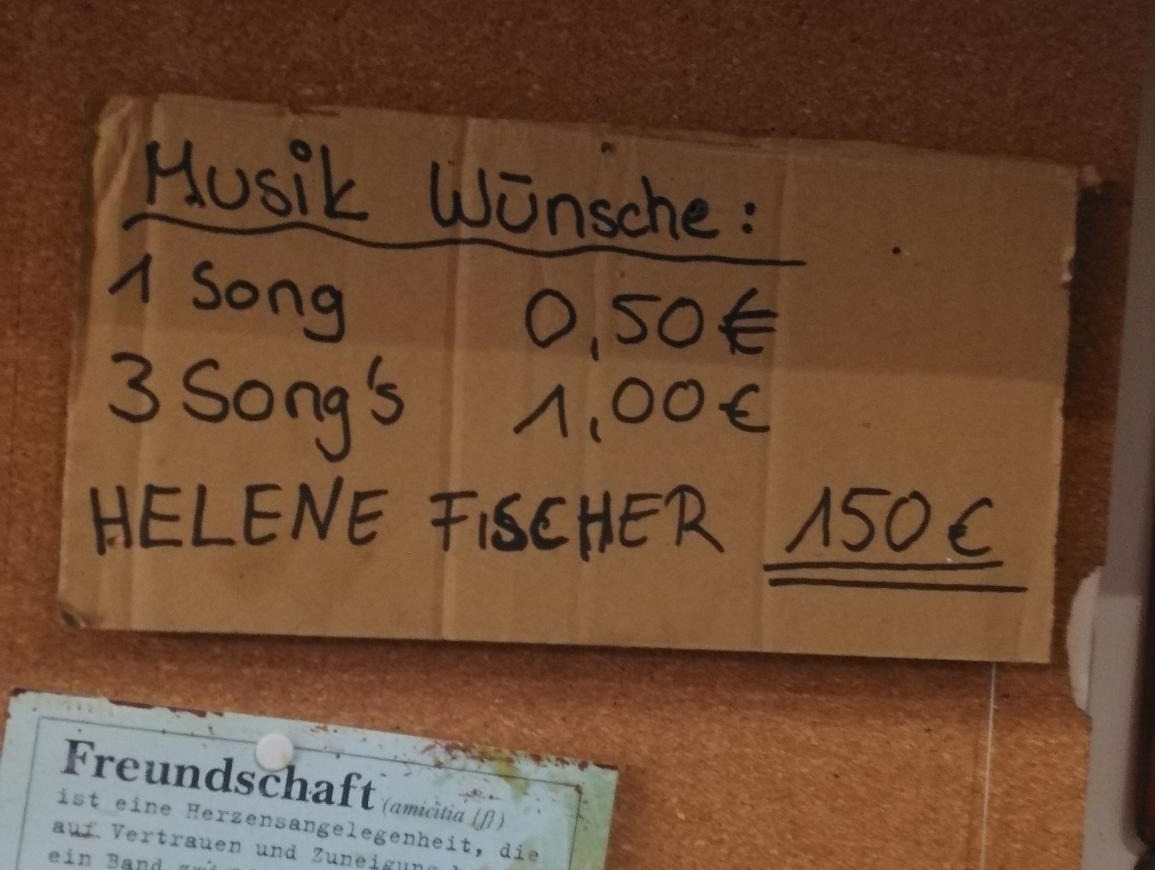 Musik Wünsche:
1 Song 0,50€
3 Song's 1,00€
HELENE FISCHER 150€
Freundschaft (amicitia {f})
ist eine Herzensangelegenheit, die
auf Vertrauen und Zuneigung
ein Band